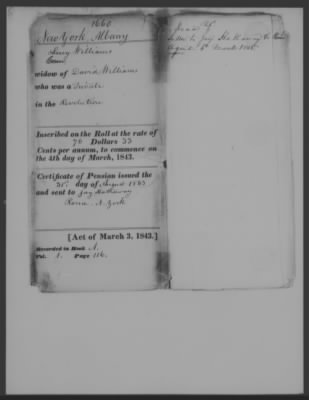 1660
New York, Albany
Lucy Williams
widow of David Williams
who was a Private
in the Revolution
Inscribed on the Roll at the rate of
76 Dollars 33
Cents per annum, to commence on
the 4th day of March, 1843.
Certificate of Pension issued the
31st day of August 1843
and sent to Jay Hathaway
Rome N. York
[Act of March 3, 1843.]
Recorded in Book A.
Vol. 1. Page 116.
Letter to Jay Hathaway